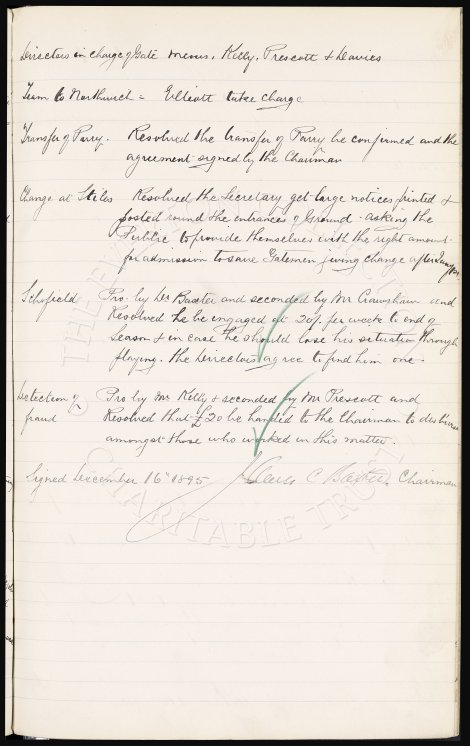 Directors in charge of Gate Messrs. Kelly, Prescott & Davies
Team to Northwich = Elliott take charge
Transfer of Parry. Resolved the transfer of Parry be confirmed and the
agreement signed by the Chairman
Change at Stiles Resolved the Secretary get large notices printed &
posted round the entrances of Ground - asking the
Public to provide themselves with the right amount
for admission to save Gatemen giving change after
Schofield Pro. by Dr Baxter and seconded by Mr Crawshaw and
Resolved he be engaged at 20/. per week to end of
Season & in case he should lose his situation through
playing. the Directors agree to find him one.
Detection of Pro by Mr Kelly & seconded by Mr Prescott and
fraud Resolved that £20 be handed to the Chairman to disburse
amongst those who worked in this matter.
Signed December 16th 1895 James C Baxter. Chairman
CHARITABLE TRUST